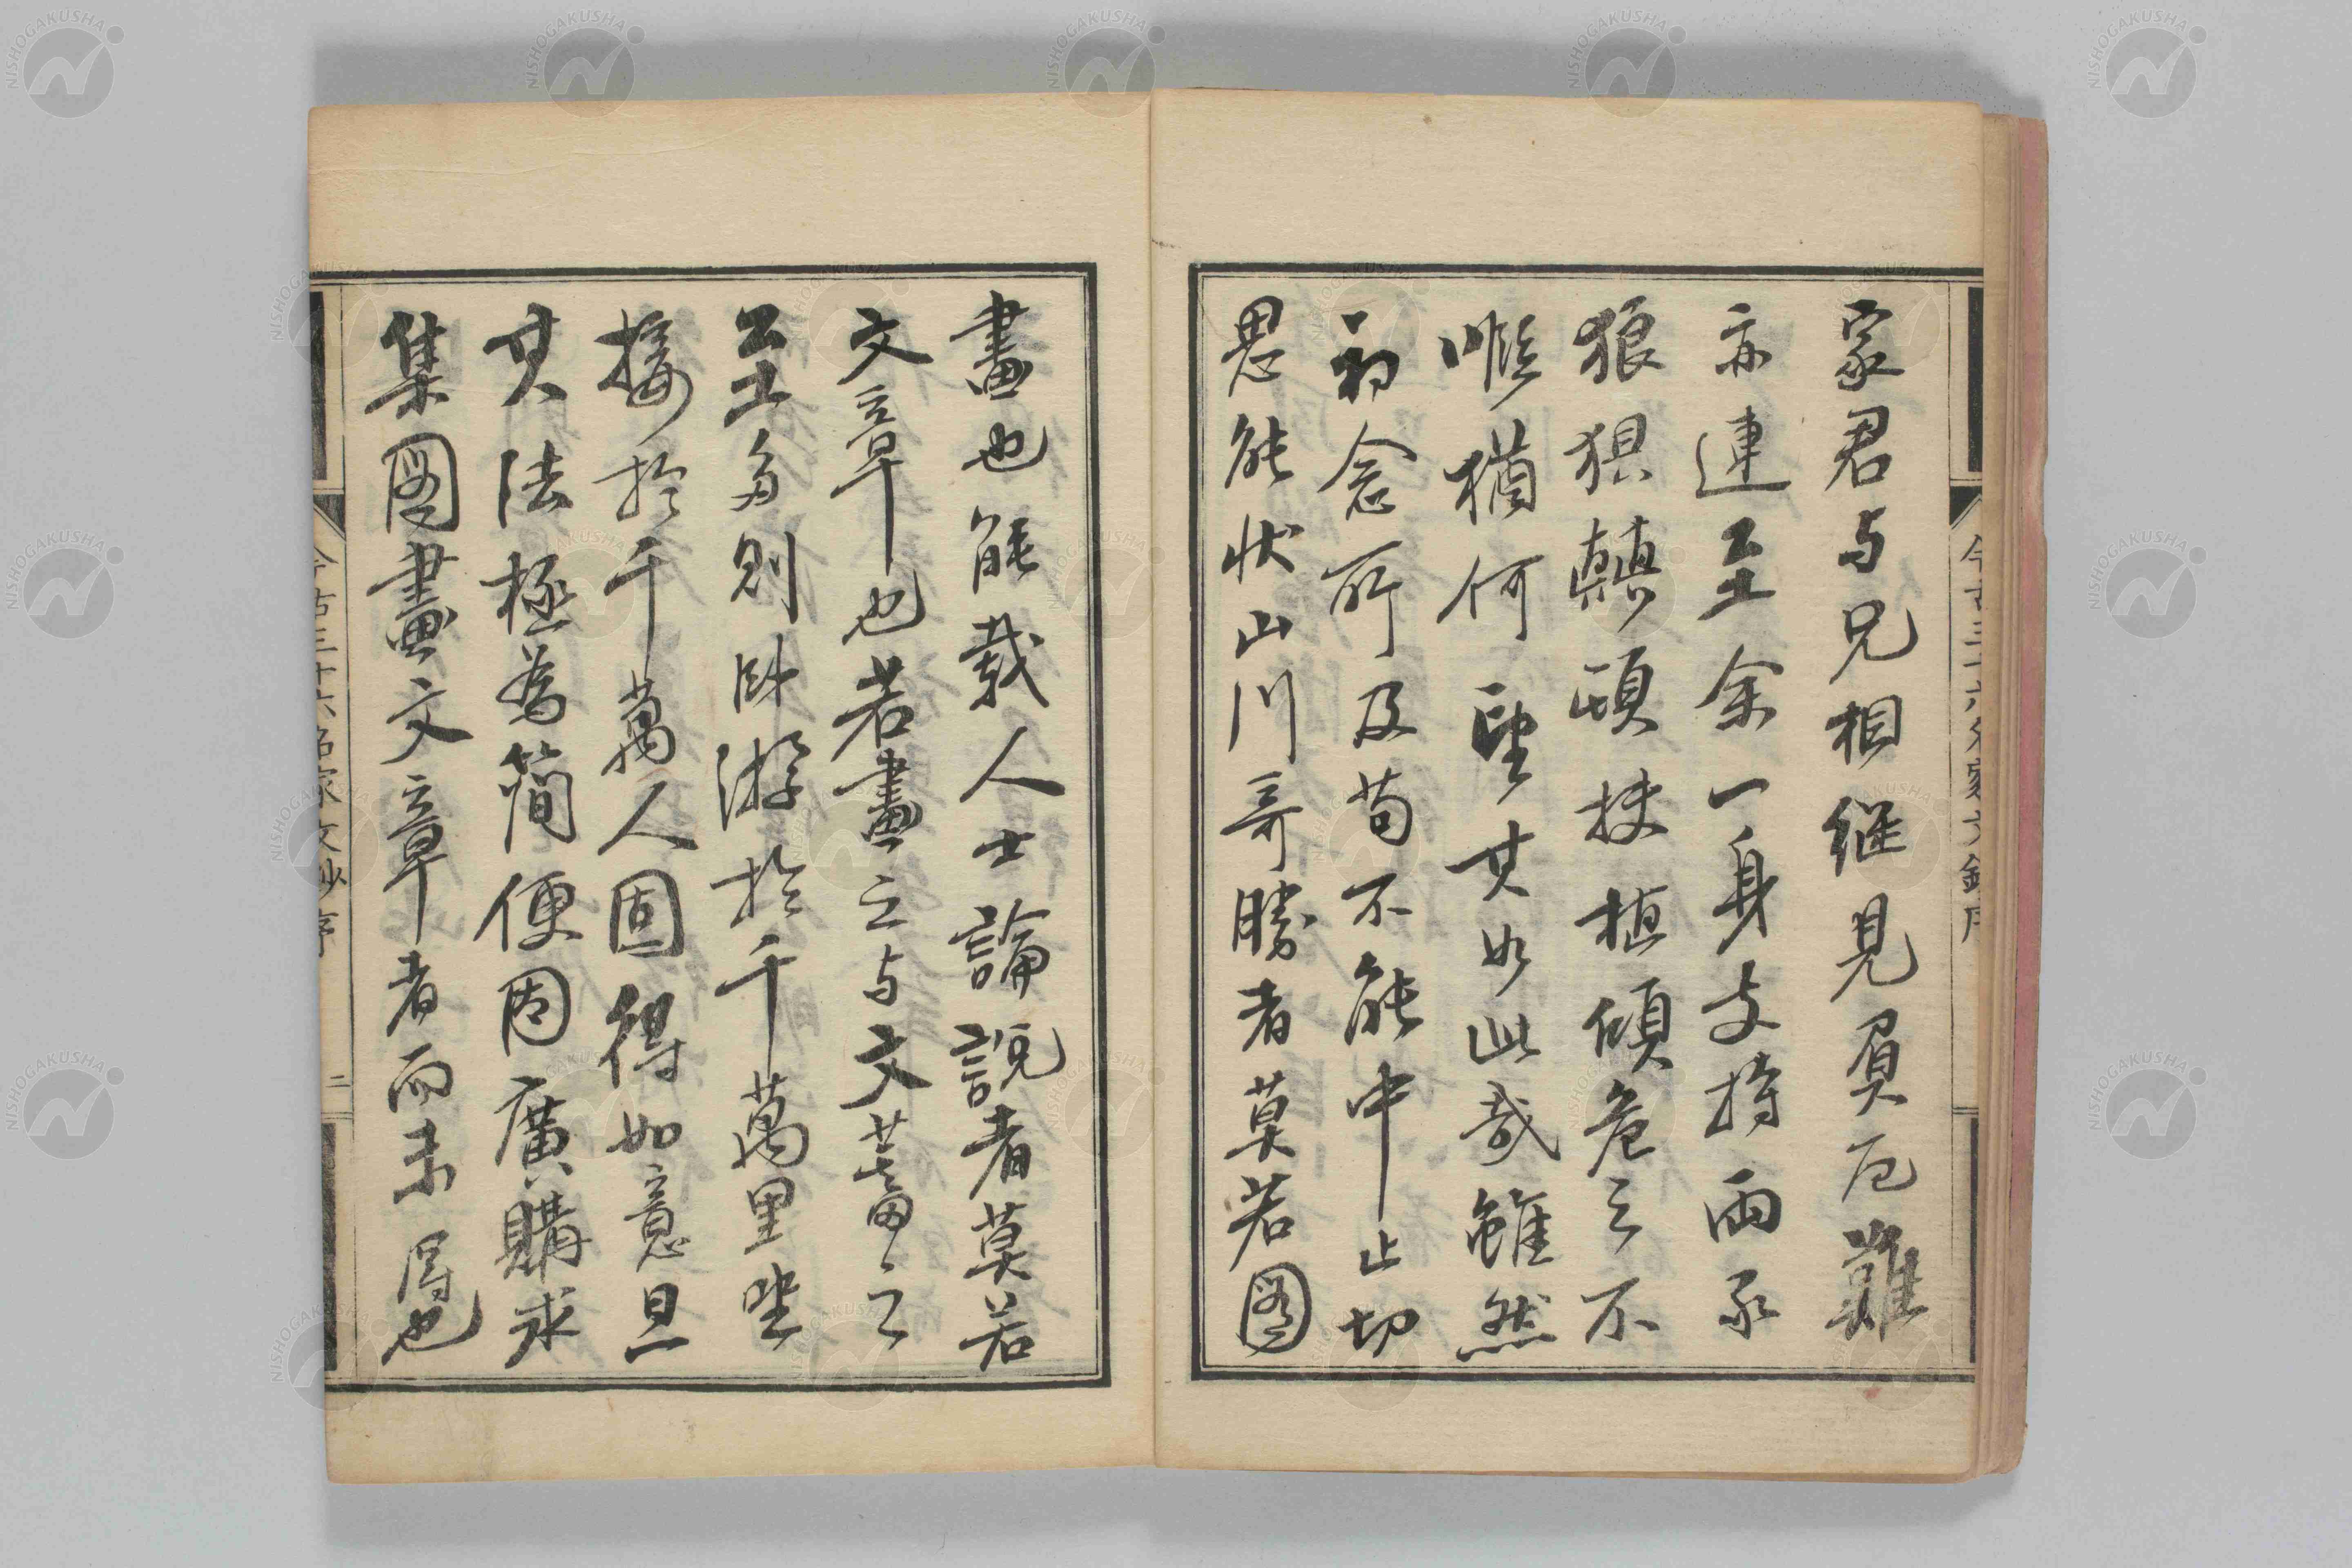 家君与兄相継見厄難
亦連至余一身支持両家
狼狽顛頓扶植傾危之不
暇猶何望其如此哉雖然
初念所及苟不能中止切
思能状山川奇勝者莫若圖
畫也能載人士論說者莫若
文章也若畫之与文蓄之
至多則臥游於千萬里坐
接於千萬人固得如意且
其法極為簡便因廣購求
集圖畫文章者而未屑也
今古三十六名家文鈔序
二
NISHOGAKUSHA